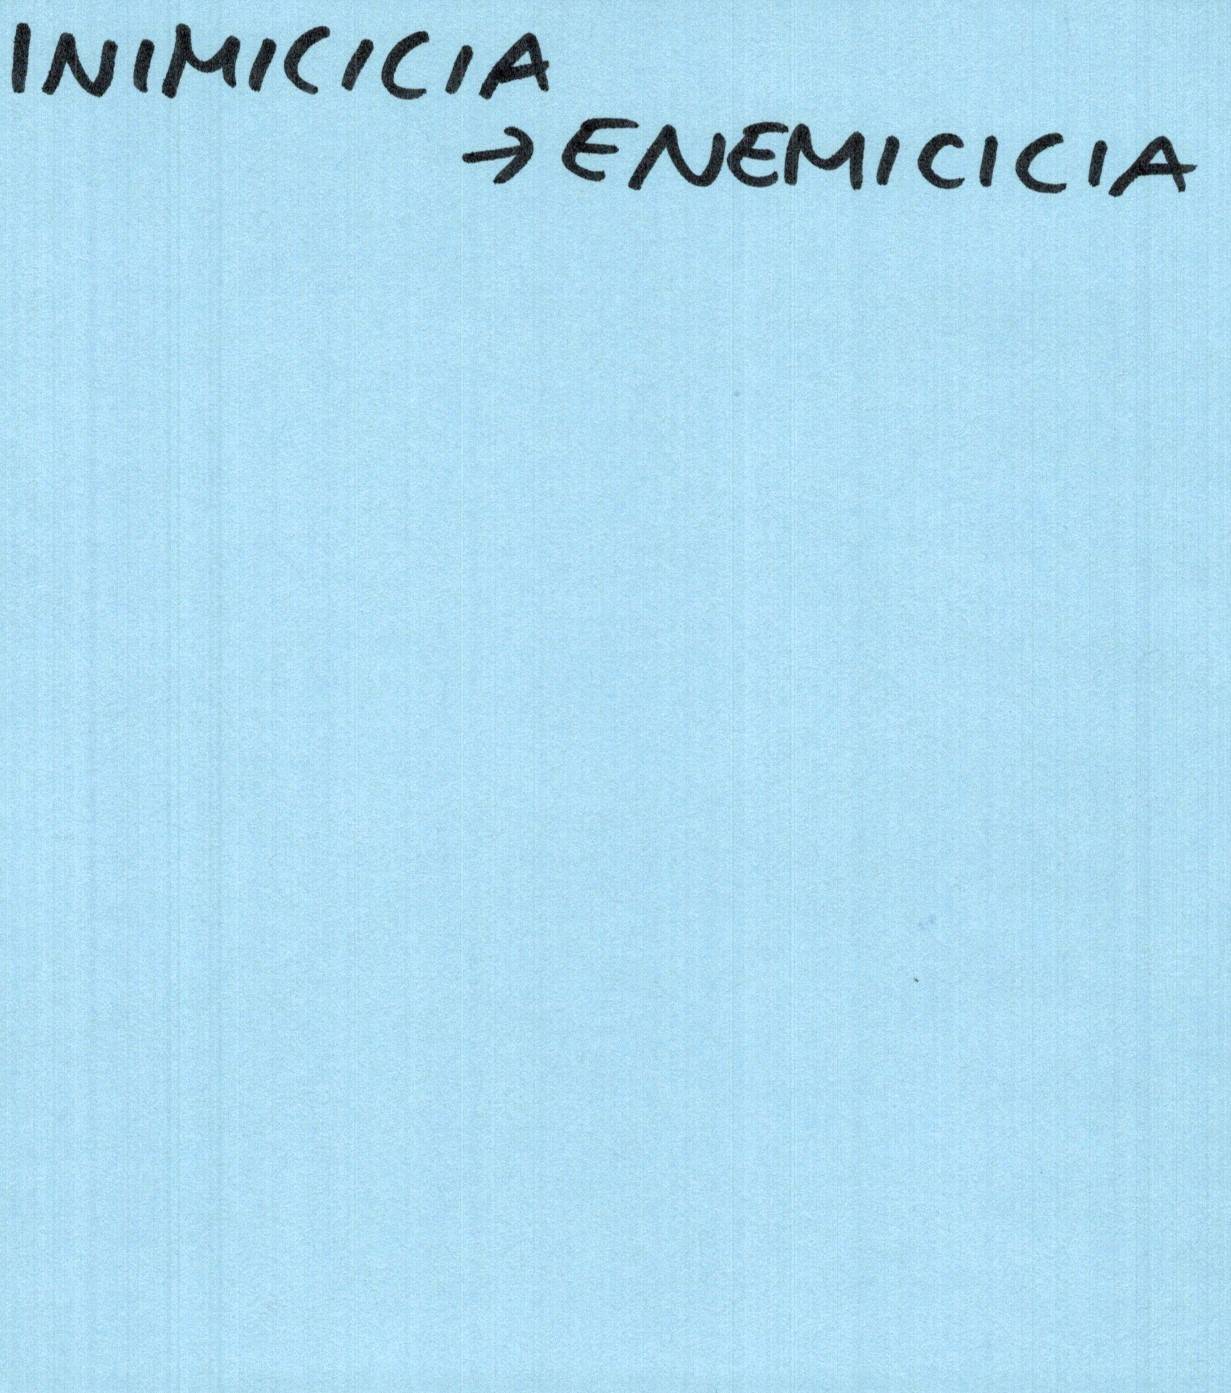 INIMICICIA
→ ENEMICICIA